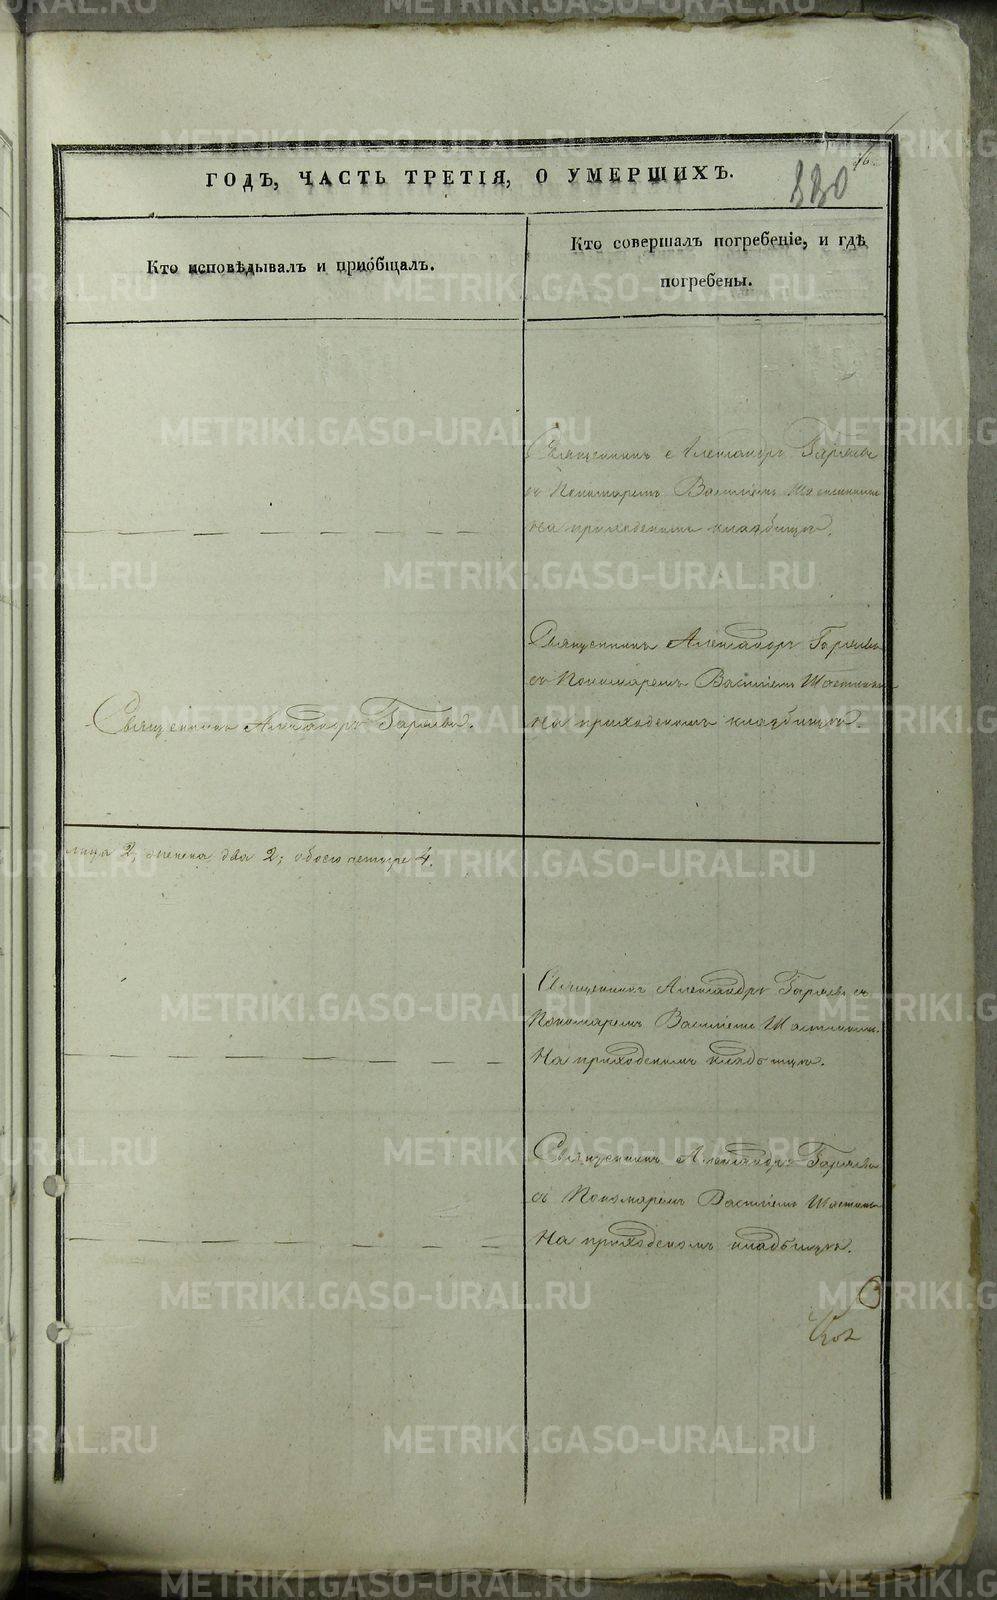 ГОДЪ, ЧАСТЬ ТРЕТІЯ, О УМЕРШИХЪ.
880
Кто исповѣдывалъ и пріобщалъ.
Кто совершалъ погребеніе, и гдѣ
погребены.
Священникъ Александръ Гаряевъ
съ Пономаремъ Василіемъ
на приходскомъ кладбищѣ.
Священникъ Александръ Гаряевъ
съ Пономаремъ Василіемъ
На приходскомъ кладбищѣ.
Священникъ Александръ Гаряевъ.
2; два 2; обоего четыре 4.
Священникъ Александръ Гаряевъ съ
Пономаремъ Василіемъ
На приходскомъ кладбищѣ.
Священникъ Александръ Гаряевъ
съ Пономаремъ Василіемъ
На приходскомъ кладбищѣ.
METRIKI.GASO-URAL.RU